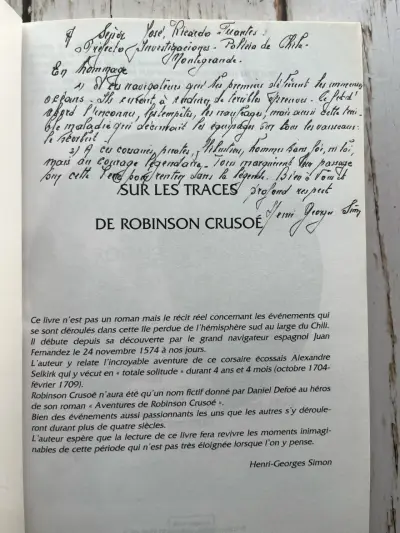 A Señor José Ricardo Fuentes
Prefecto Investigaciones. Policia de Chile.
Montegrande.
En hommage
1) à ces navigateurs qui les premiers les immenses
océans. Ils eurent à de terribles épreuves. Ce fut d'
abord l'inconnu, les tempêtes, les naufrages, mais aussi cette terri-
ble maladie qui décimait les équipages sur tous les vaisseaux.
le scorbut.
2) A ces corsaires, pirates, flibustiers, hommes sans foi, ni loi,
mais au courage légendaire. Tous marquèrent leur passage
sur cette pour rentrer dans la légende. Bien à vous et
profond respect
SUR LES TRACES
DE ROBINSON CRUSOÉ
Henri Georges Simon
Ce livre n'est pas un roman mais le récit réel concernant les événements qui
se sont déroulés dans cette île perdue de l'hémisphère sud au large du Chili.
Il débute depuis sa découverte par le grand navigateur espagnol Juan
Fernandez le 24 novembre 1574 à nos jours.
L'auteur y relate l'incroyable aventure de ce corsaire écossais Alexandre
Selkirk qui y vécut en « totale solitude » durant 4 ans et 4 mois (octobre 1704-
février 1709).
Robinson Crusoé n'aura été qu'un nom fictif donné par Daniel Defoé au héros
de son roman « Aventures de Robinson Crusoé ».
Bien des événements aussi passionnants les uns que les autres s'y déroule-
ront durant plus de quatre siècles.
L'auteur espère que la lecture de ce livre fera revivre les moments inimagi-
nables de cette période qui n'est pas très éloignée lorsque l'on y pense.
Henri-Georges Simon